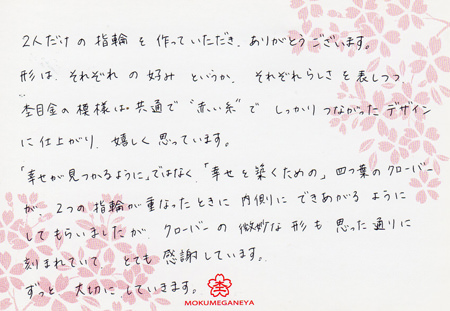 2人だけの指輪を作っていただき、ありがとうございます。
形は、それぞれの好みというか、それぞれらしさを表しつつ
杢目金の模様は共通で“赤い糸”でしっかりつながったデザイン
に仕上がり、嬉しく思っています。
「幸せが見つかるように」ではなく、「幸せを築くための」四つ葉のクローバー
が、2つの指輪が重なったときに内側にできあがるように
してもらいましたが、クローバーの微妙な形も思った通りに
刻まれていて、とても感謝しています。
ずっと大切にしていきます。
MOKUMEGANEYA